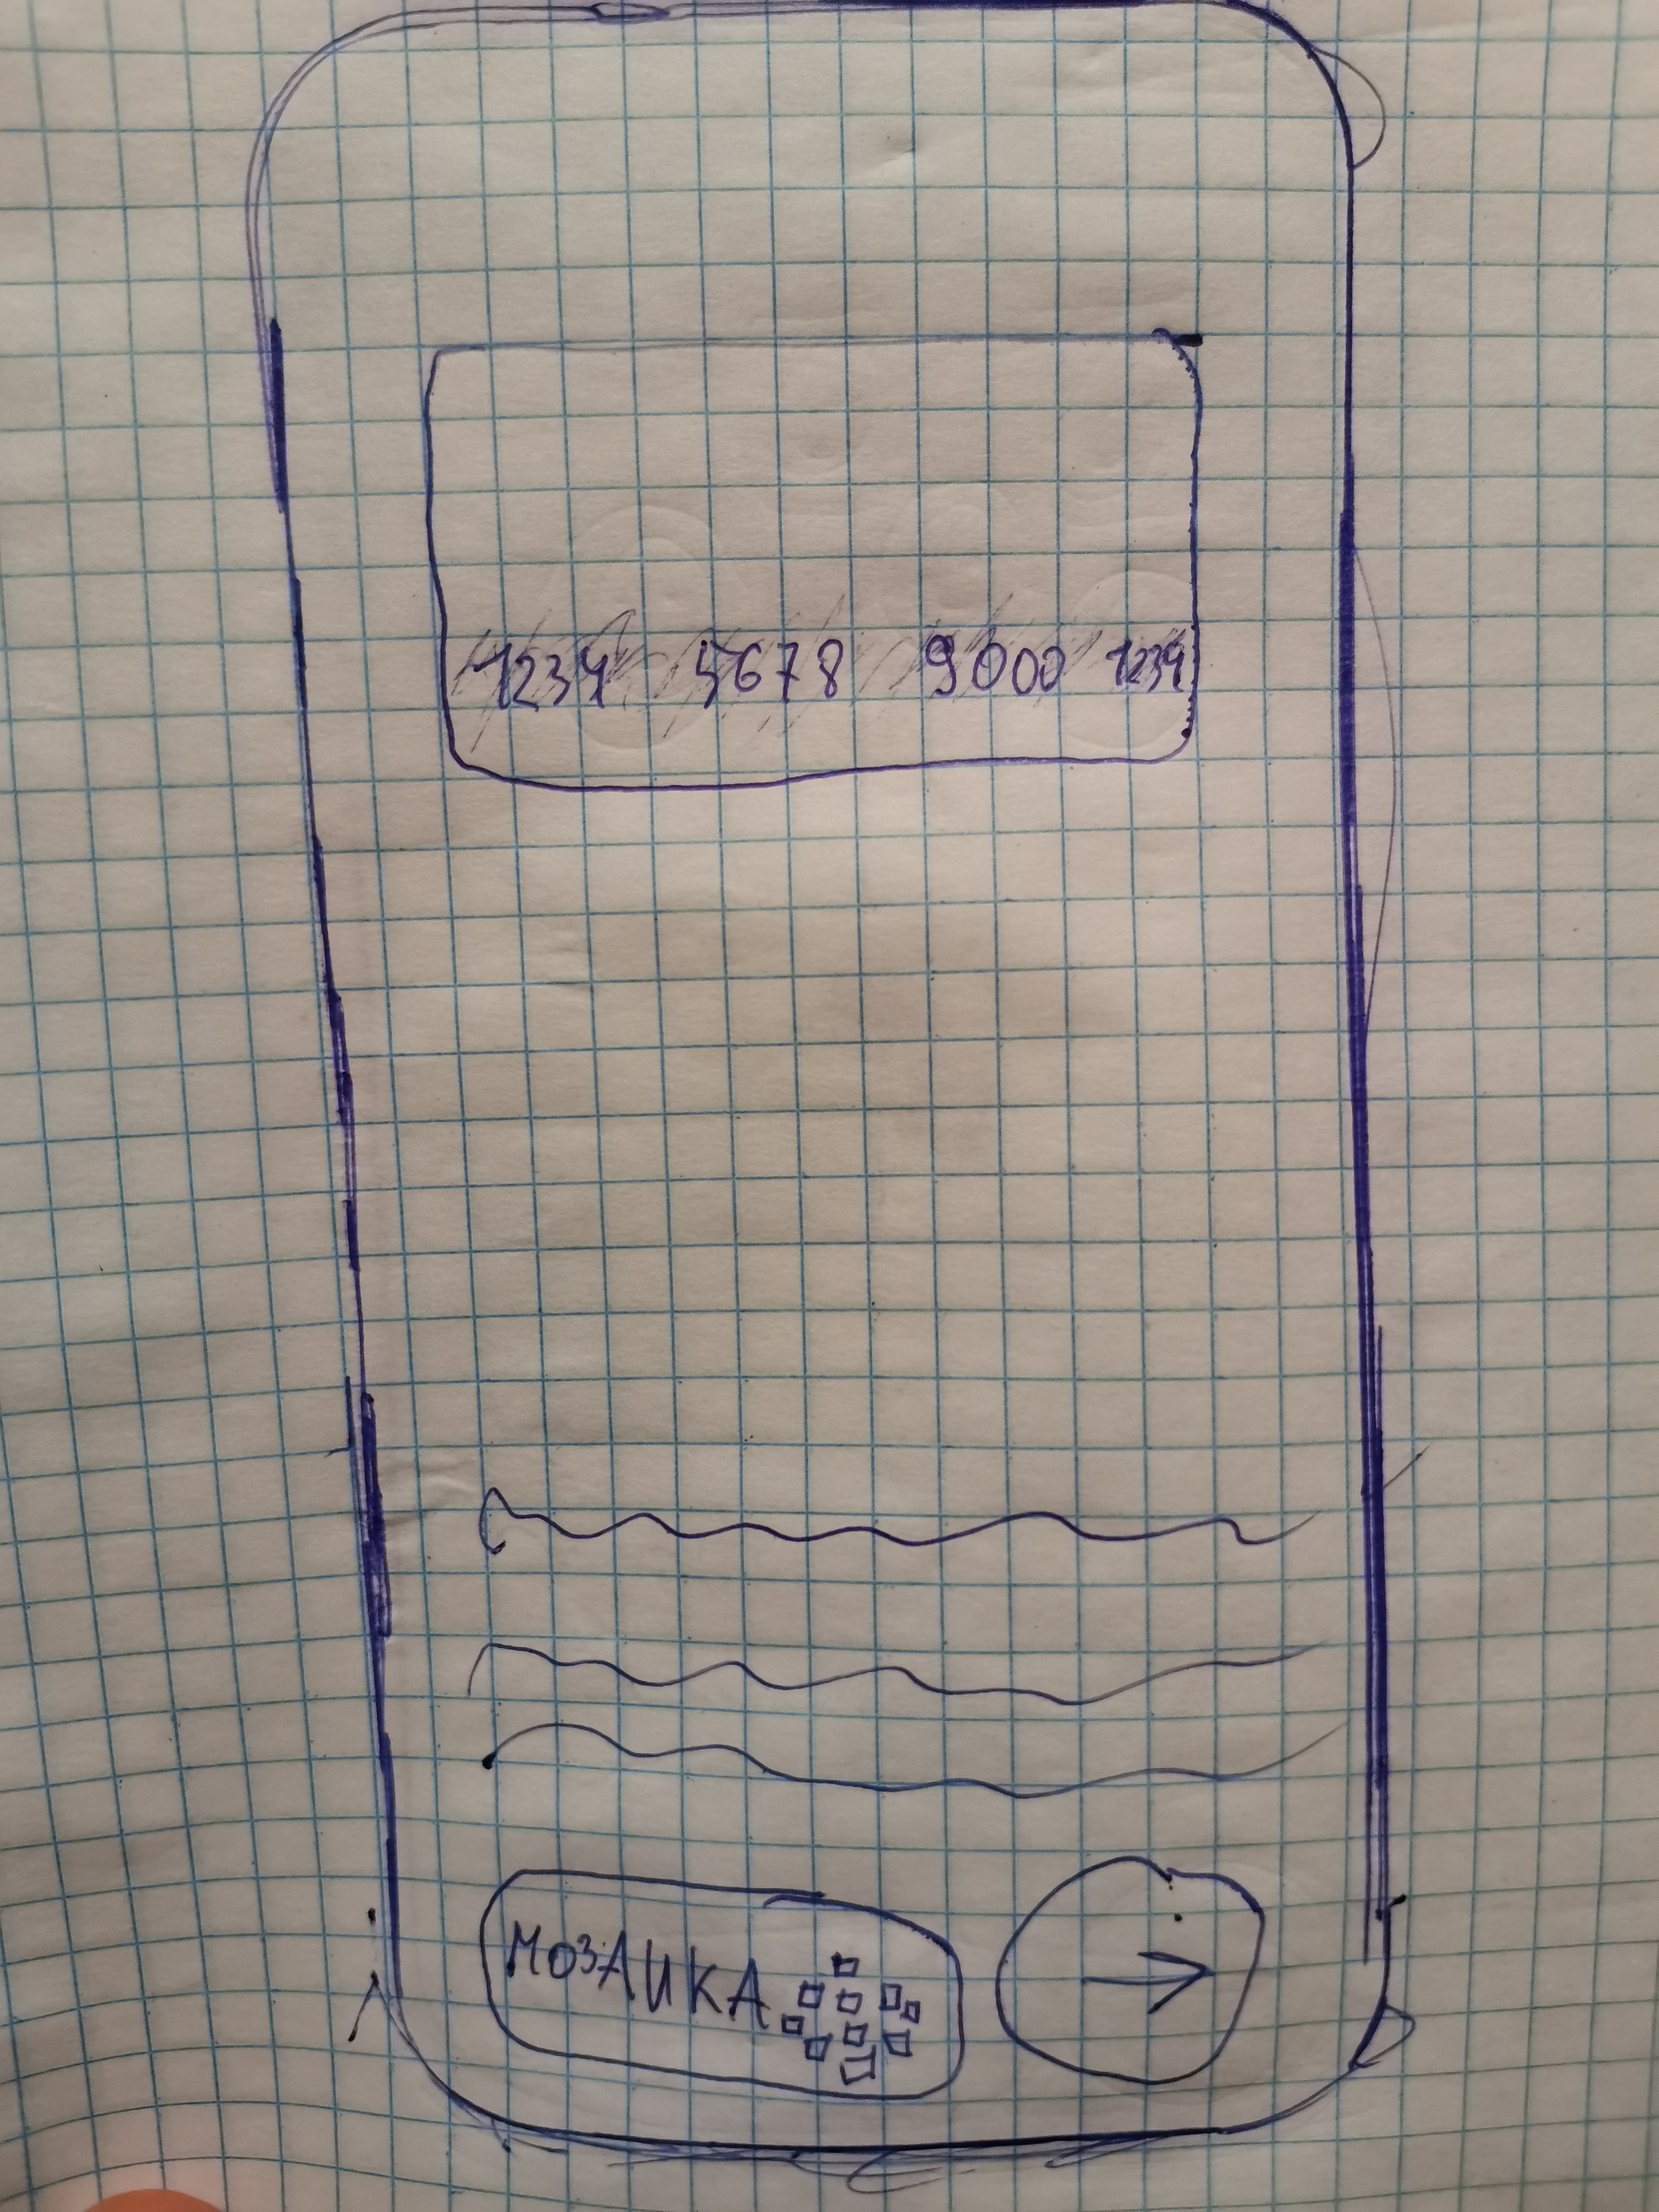 1234 5678 9000 1234
МОЗАИКА